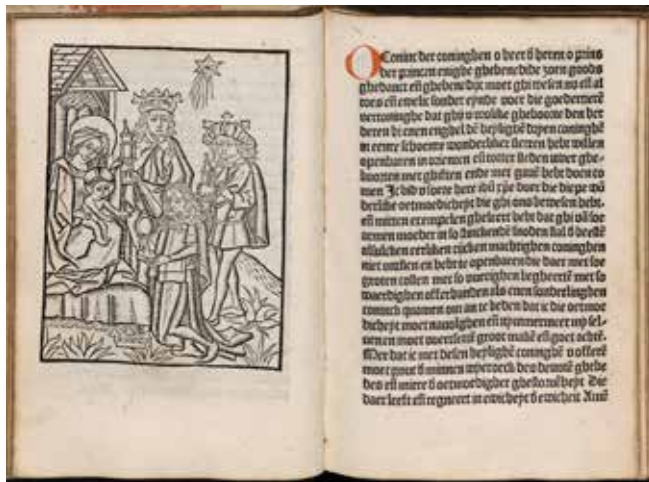 O Conint der coninghen o heer d heren o prins
der princen enighe ghebenedide zoen goods
ghedanct eñ ghebenedijt moet ghi wesen nu eñ al
toes eñ ewelic sonder eynde voer die goedertierē
vertoninghe dat ghi v
deren bi enen enghel dē heylighē dryen coninghē
in eenre schoenre wonderliker sterren hebt willen
openbaren in orienten eñ tooter steden uwer ghe
boorten met ghiften ende met hebt doen co
men Ic bid v soete here ihū xpē duer die diepe wō
derlike oetmoedicheyt die ghi ons bewesen hebt.
eñ mitten exempelen gheleert hebt dat ghi vā soe
armen moeder in so stinckendē snoden stal d beestē
alsulcken eerliken rijcken machtighen coninghen
niet woudt en hebt te openbaren die daer met soe
groten costen met so vuerighen begheertē met so
waerdighen offerhanden als enen sonderlinghen
coninck quamen om an te beden dat ic die oetmoe
dicheyt moet navolghen eñ nemmermeer mij sel-
uen en moet voerseten groot makē eñ goet achtē.
Mer dat ic met desen heylighē coninghē v offerē
moet gout d minnen wyeroeck des deuotē ghebe
des eñ mirre d oetmoedigher ghestoruicheyt Die
daer leeft eñ regneert in ewicheyt d ewicheit Amē